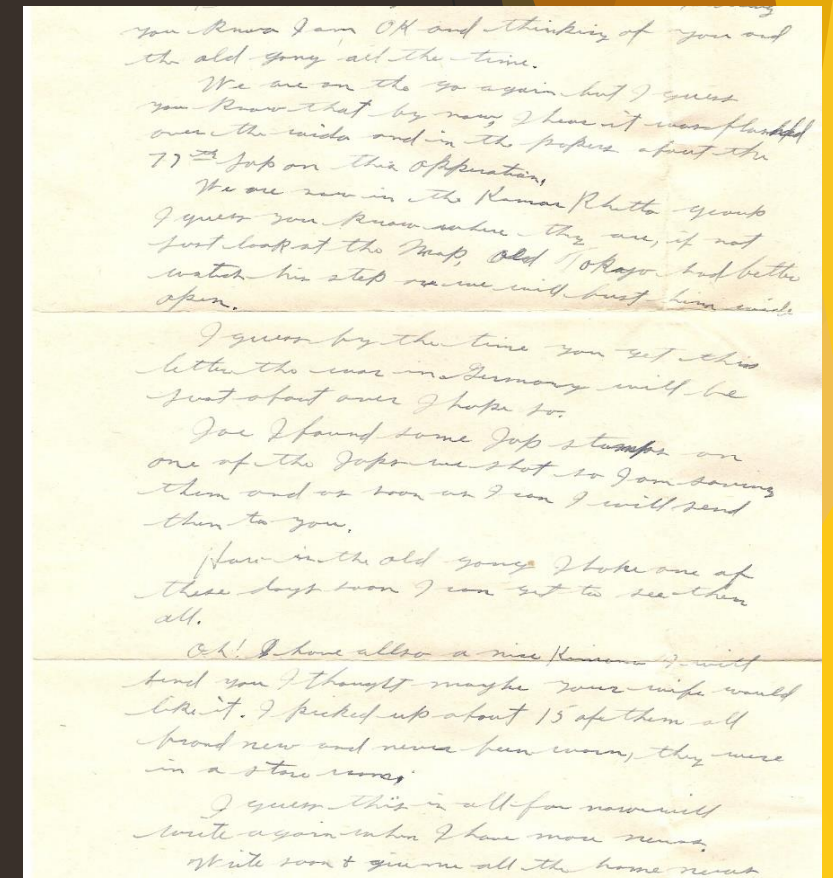 you know I am OK and thinking of you and
the old gang all the time.
We are on the go again but I guess
you know that by now, I hear it was flashed
over the raido and in the papers about the
77th Jap on this opperation,
We are now in the Kamar Rhetta group
I guess you know where thy are, if not
just look at the Map, Old Tokajo had better
watch his step or we will bust him wide
open.
I guess by the time you get this
letter the war in Germany will be
just about over I hope so.
Joe I found some Jap stamps on
one of the Japs we shot so I am saving
them and as soon as I can I will send
them to you.
How is the old gang I hope one of
these days soon I can get to see them
all.
Oh! I have allso a nice Kimona I will
send you I thought maybe your wife would
like it. I picked up about 15 of them all
brand new and never been worn, they were
in a store room.
I guess this is all for now will
write again when I have more news.
Write soon & give me all the home news